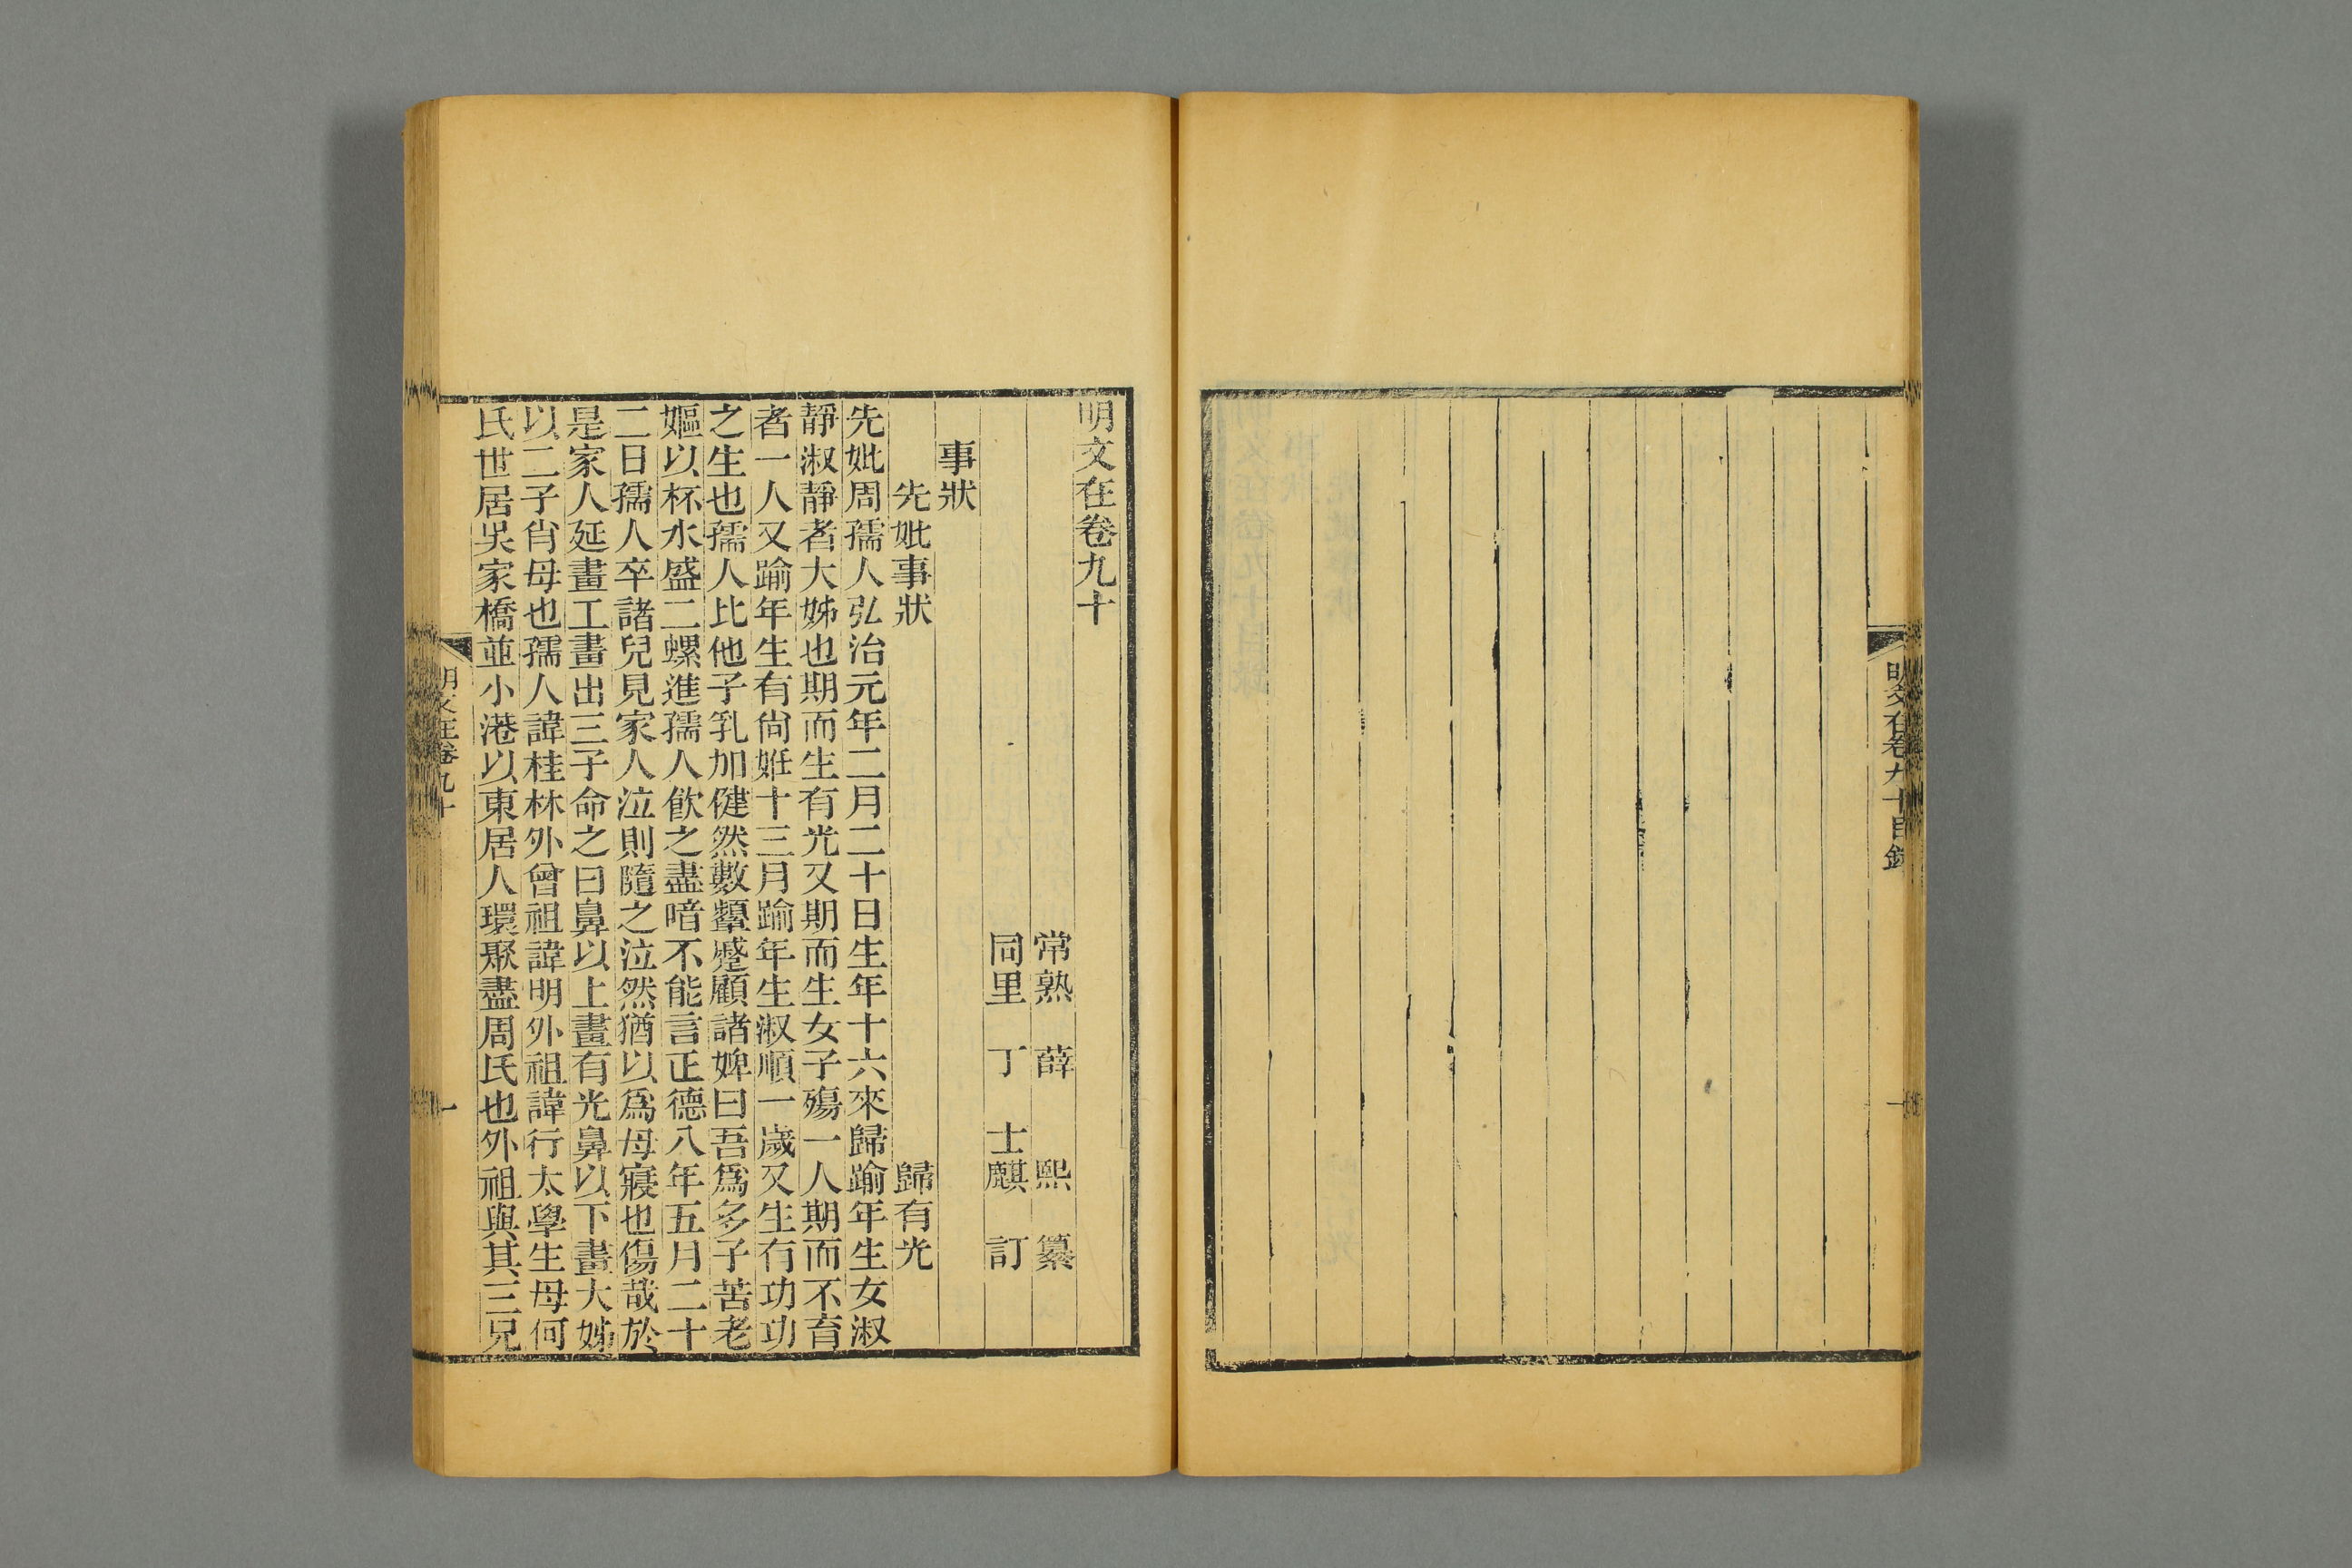 明文在卷九十目錄
一
明文在卷九十
常熟 薛 熙 纂
同里 丁 士麒 訂
事狀
先妣事狀 歸有光
先妣周孺人弘治元年二月二十日生年十六來歸踰年生女淑
靜淑靜者大姊也期而生有光又期而生女子殤一人期而不育
者一人又踰年生有尙姙十三月踰年生淑順一歲又生有功功
之生也孺人比他子乳加健然數顰蹙顧諸婢曰吾爲多子苦老
嫗以杯水盛二螺進孺人飮之盡喑不能言正德八年五月二十
二日孺人卒諸兒見家人泣則隨之泣然猶以爲母寢也傷哉於
是家人延畫工畫出三子命之曰鼻以上畫有光鼻以下畫大姊
以二子肖母也孺人諱桂林外曾祖諱明外祖諱行太學生母何
氏世居吳家橋並小港以東居人環聚盡周氏也外祖與其三兄
明文在卷九十
一